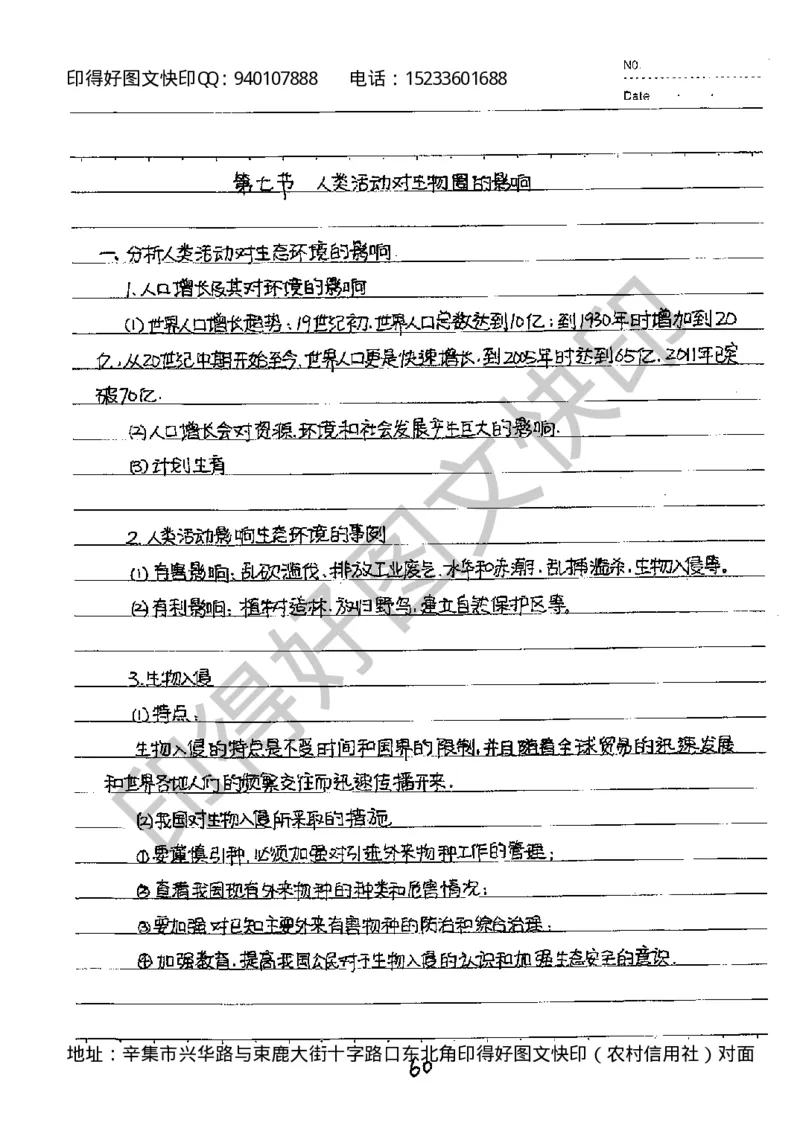 印得好图文快印QQ：940107888 电话：15233601688
NO.
Date
第七节 人类活动对生物圈的影响
一、分析人类活动对生态环境的影响
1.人口增长及其对环境的影响
(1)世界人口增长趋势：19世纪初，世界人口总数达到10亿；到1930年时增加到20
亿，从20世纪中期开始至今，世界人口更是快速增长，到2005年时达到65亿，2011年已突
破70亿.
(2)人口增长会对资源、环境和社会发展产生巨大的影响.
(3)计划生育
2.人类活动影响生态环境的事例
(1)有害影响：乱砍滥伐、排放工业废气、水华和赤潮、乱捕滥杀，生物入侵等。
(2)有利影响：植树造林，放归野鸟，建立自然保护区等。
3.生物入侵
(1)特点：
生物入侵的特点是不受时间和国界的限制，并且随着全球贸易的迅速发展
和世界各地人们的频繁交往而迅速传播开来.
(2)我国对生物入侵所采取的措施
①要谨慎引种，必须加强对引进外来物种工作的管理；
②查清我国现有外来物种的种类和危害情况；
③要加强对已知主要外来有害物种的防治和综合治理；
④加强教育，提高我国公民对于生物入侵的认识和加强生态安全的意识.
地址：辛集市兴华路与束鹿大街十字路口东北角印得好图文快印（农村信用社）对面
60
印得好图文快印